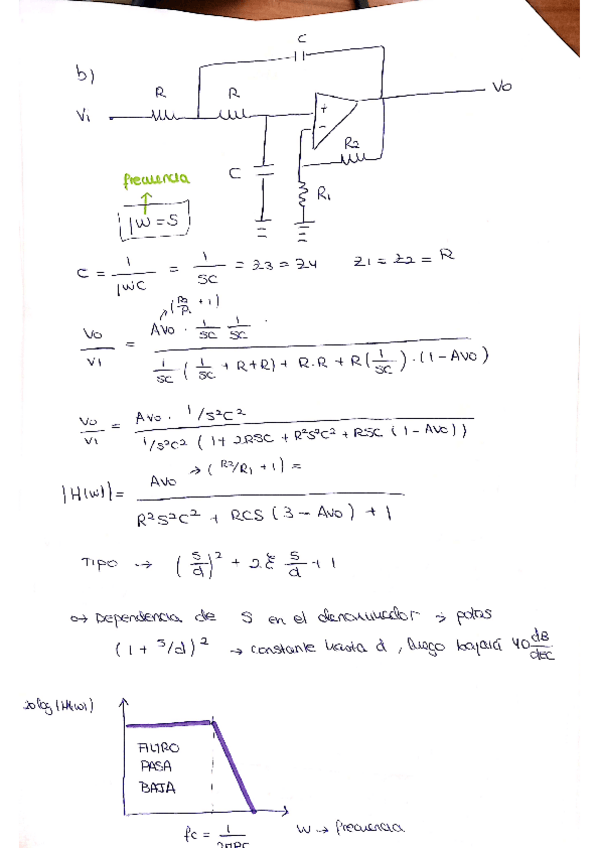 b)
C
R R
Vi
Vo
+
-
R2
C
R1
frecuencia
jW = S
C = 1/jWC = 1/SC = Z3 = Z4 Z1 = Z2 = R
(R2/R1 + 1)
Vo/Vi = AVO · 1/SC 1/SC / 1/SC (1/SC + R+R) + R.R + R(1/SC) · (1 - AVO)
Vo/Vi = AVO · 1/S²C² / 1/S²C² (1 + 2RSC + R²S²C² + RSC (1 - AVO))
|H(w)| = AVO → (R2/R1 + 1) = / R²S²C² + RCS (3 - AVO) + 1
TIPO → (S/d)² + 2ξ S/d + 1
Dependencia de S en el denominador → polos
(1 + S/d)² → constante hasta d, luego bajará 40 dB/dec
20log |H(w)|
FILTRO
PASA
BAJA
fc = 1/2πRC W → frecuencia